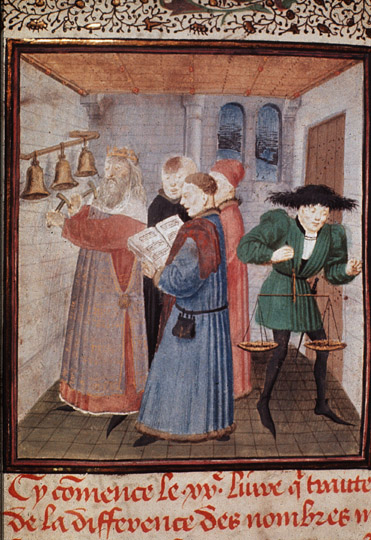 Cy cōmence le liure q̄ traitte
de la difference des nombres